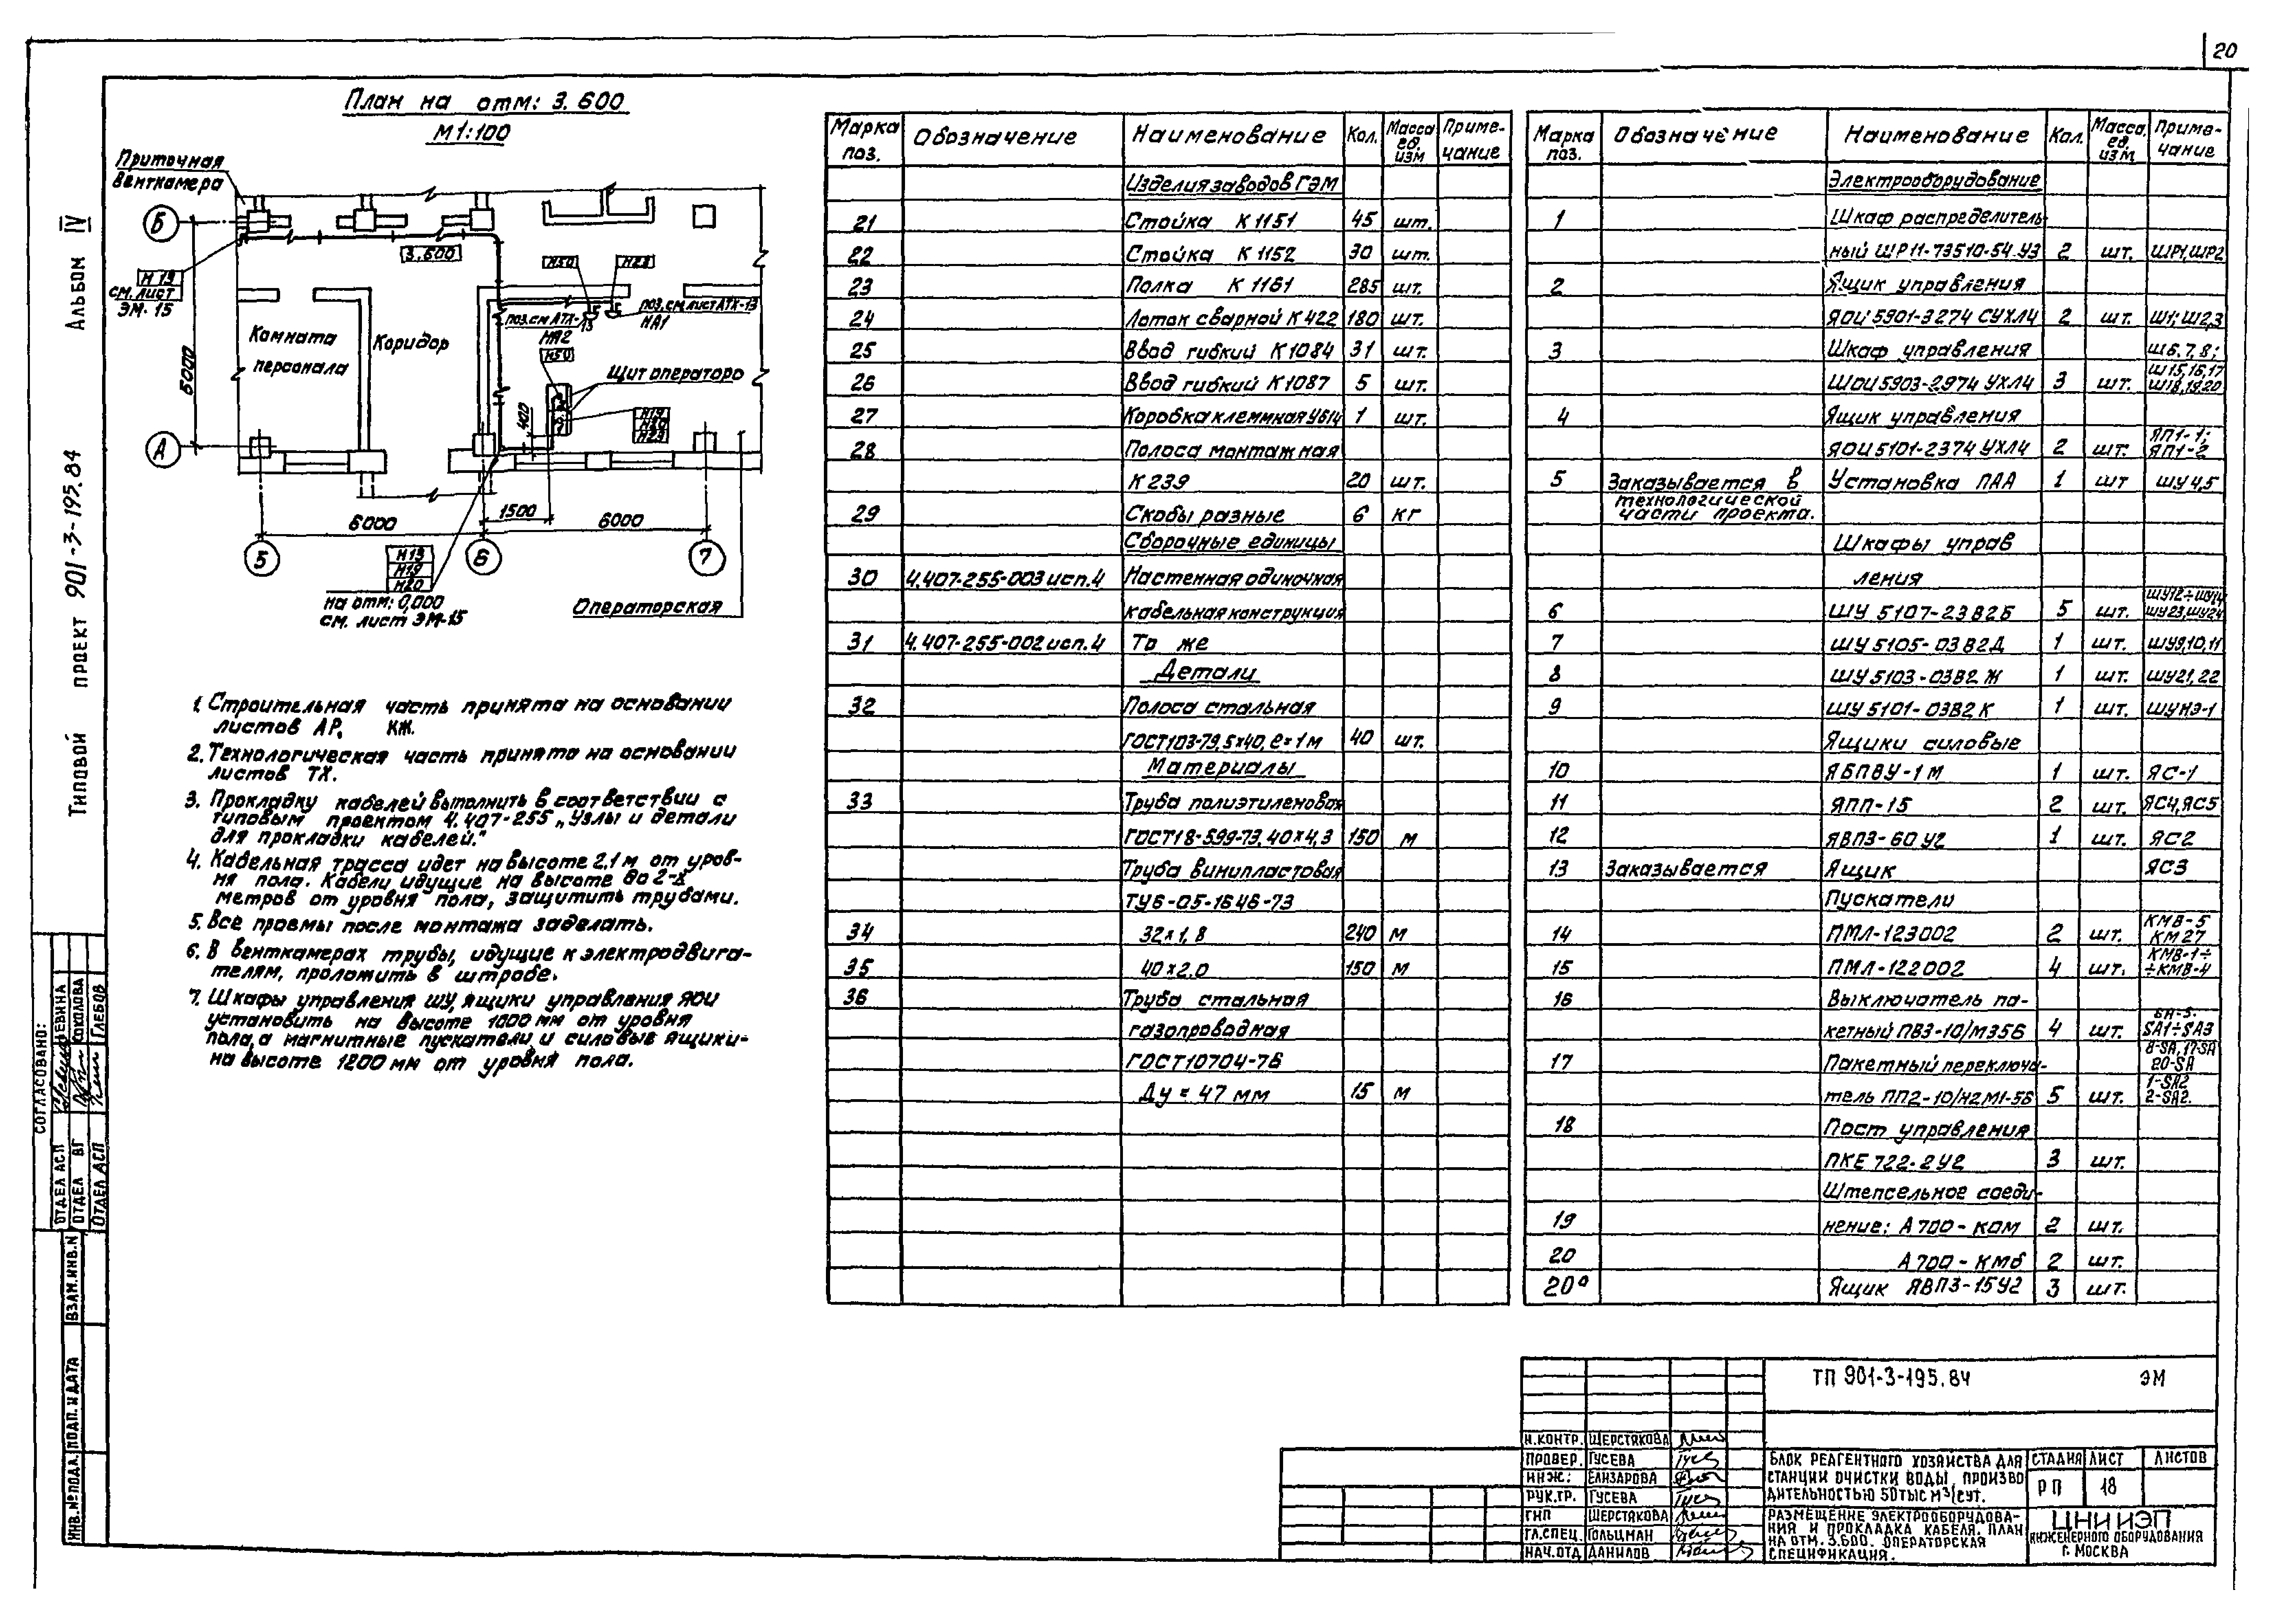 20
План на отм: 3.600
М1:100
Приточная
венткамера
Б
3.600
М19
см. лист
ЭМ-15
М50
М23
поз. см. лист АТХ-13
НА1
поз. см АТХ-13
НА2
М50
Комната
персонала
Коридор
Щит оператора
М19
М20
М23
400
6000
А
1500
6000
6000
5
6
7
М13
М19
М20
на отм: 0,000
см. лист ЭМ-15
Операторская
1. Строительная часть принята на основании
листов АР, КЖ.
2. Технологическая часть принята на основании
листов ТХ.
3. Прокладку кабелей выполнить в соответствии с
типовым проектом 4.407-255 „Узлы и детали
для прокладки кабелей."
4. Кабельная трасса идет на высоте 2,1 м от уров-
ня пола. Кабели идущие на высоте до 2-х
метров от уровня пола, защитить трубами.
5. Все проемы после монтажа заделать.
6. В венткамерах трубы, идущие к электродвига-
телям, проложить в штробе.
7. Шкафы управления ШУ, ящики управления ЯОИ
установить на высоте 1000 мм от уровня
пола, а магнитные пускатели и силовые ящики-
на высоте 1200 мм от уровня пола.
Марка поз. Обозначение Наименование Кол. Масса ед. изм Приме-чание
Изделия заводов ГЭМ
21 Стойка К1151 45 шт.
22 Стойка К1152 30 шт.
23 Полка К1161 285 шт.
24 Лоток сварной К422 180 шт.
25 Ввод гибкий К1084 31 шт.
26 Ввод гибкий К1087 5 шт.
27 Коробка клеммная У614 1 шт.
28 Полоса монтажная
К239 20 шт.
29 Скобы разные 6 кг
Сборочные единицы
30 4.407-255-003 исп.4 Настенная одиночная
кабельная конструкция
31 4.407-255-002 исп.4 То же
Детали
32 Полоса стальная
ГОСТ103-79, 5х40, е=1м 40 шт.
Материалы
33 Труба полиэтиленовая
ГОСТ18-599-73, 40×4,3 150 м
Труба винипластовая
ТУ6-05-1646-73
34 32×1,8 240 м
35 40×2.0 150 м
36 Труба стальная
газопроводная
ГОСТ10704-76
Ду = 47 мм 15 м
Марка поз. Обозначение Наименование Кол. Масса ед. изм Приме-чание
Электрооборудование
1 Шкаф распределитель-
ный ШР11-73510-54 У3 2 шт. ШР1, ШР2
2 Ящик управления
ЯОИ 5901-3274 СУХЛ4 2 шт. Ш1; Ш2,3
3 Шкаф управления Ш6,7,8;
ШОИ 5903-2974 УХЛ4 3 шт. Ш15,16,17 Ш18,19,20
4 Ящик управления
ЯОИ 5101-2374 УХЛ4 2 шт. ЯП1-1; ЯП1-2
5 Заказывается в Установка ПАА 1 шт ШУ4,5
технологической
части проекта.
Шкафы управ
ления
6 ШУ 5107-23В2Б 5 шт. ШУ12÷ШУ14 ШУ23,ШУ24
7 ШУ 5105-03В2Д 1 шт. ШУ9,10,11
8 ШУ 5103-03В2Ж 1 шт. ШУ21,22
9 ШУ 5101-03В2К 1 шт. ШУНЭ-1
Ящики силовые
10 ЯБПВУ-1М 1 шт. ЯС-1
11 ЯПП-15 2 шт. ЯС4,ЯС5
12 ЯВПЗ-60 У2 1 шт. ЯС2
13 Заказывается Ящик ЯС3
Пускатели
14 ПМЛ-123002 2 шт. КМВ-5 КМ27
15 ПМЛ-122002 4 шт. КМВ-1÷ ÷КМВ-4
16 Выключатель па-
кетный ПВ3-10/М356 4 шт. SA1÷SA3
17 Пакетный переключа- 8-SA, 17-SA 20-SA
тель ПП2-10/Н2М1-56 5 шт. 1-SA2 2-SA2.
18 Пост управления
ПКЕ 722-2У2 3 шт.
Штепсельное соеди-
19 нение: А700-КОМ 2 шт.
20 А700-КМб 2 шт.
20а Ящик ЯВПЗ-15У2 3 шт.
Типовой проект 901-3-195.84 Альбом IV
СОГЛАСОВАНО:
ОТДЕЛ АСП
ОТДЕЛ ВГ СОКОЛОВА
ОТДЕЛ АСП ГЛЕБОВ
ВЗАМ.ИНВ.N
ПОДП. И ДАТА
ИНВ.№ПОДЛ.
ТП 901-3-195.84 ЭМ
Н.КОНТР. ШЕРСТЯКОВА
ПРОВЕР. ГУСЕВА
ИНЖ: ЕЛИЗАРОВА
РУК.ГР. ГУСЕВА
ГИП ШЕРСТЯКОВА
ГЛ.СПЕЦ. ГОЛЬЦМАН
НАЧ.ОТД ДАНИЛОВ
БЛОК РЕАГЕНТНОГО ХОЗЯЙСТВА ДЛЯ
СТАНЦИИ ОЧИСТКИ ВОДЫ, ПРОИЗВО
ДИТЕЛЬНОСТЬЮ 50ТЫС М³/СУТ.
СТАДИЯ ЛИСТ ЛИСТОВ
РП 18
РАЗМЕЩЕНИЕ ЭЛЕКТРООБОРУДОВА-
НИЯ И ПРОКЛАДКА КАБЕЛЯ. ПЛАН
НА ОТМ. 3.600. ОПЕРАТОРСКАЯ
СПЕЦИФИКАЦИЯ.
ЦНИИЭП
ИНЖЕНЕРНОГО ОБОРУДОВАНИЯ
Г. МОСКВА